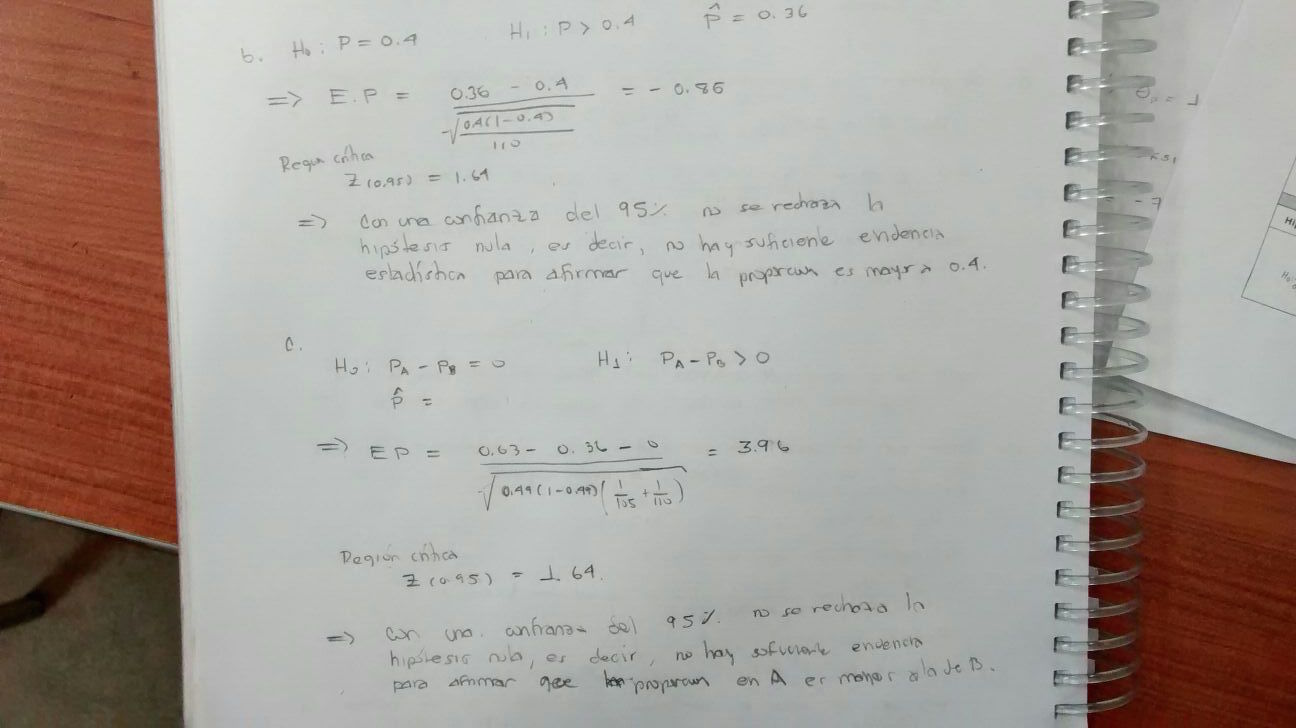 b. H₀ : P = 0.4 H₁ : P > 0.4 p̂ = 0.36
=> E.P = (0.36 - 0.4) / (√(0.4(1-0.4)) / 110) = - 0.86
Región crítica
Z(0.95) = 1.64
=> Con una confianza del 95% no se rechaza la
hipótesis nula, es decir, no hay suficiente evidencia
estadística para afirmar que la proporcion es mayor a 0.4.
c.
H₀ : PA - PB = 0 H1 : PA - PB > 0
p̂ =
=> EP = (0.63 - 0.36 - 0) / √(0.49(1-0.49)(1/105 + 1/110)) = 3.96
Región crítica
Z(0.95) = 1.64.
=> Con una confianza del 95% no se rechaza la
hipótesis nula, es decir, no hay suficiente evidencia
para afirmar que proporcion en A es a la de B.
= 1
= -7